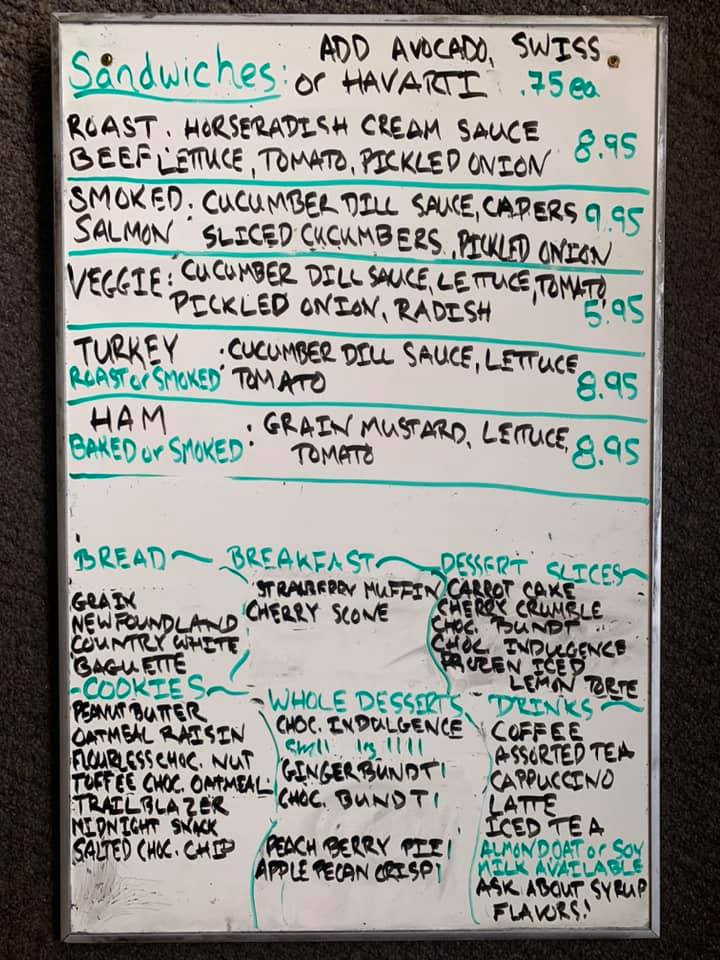 Sandwiches: ADD AVOCADO, SWISS
or HAVARTI .75 ea.
ROAST . HORSERADISH CREAM SAUCE
BEEF LETTUCE, TOMATO, PICKLED ONION 8.95
SMOKED: CUCUMBER DILL SAUCE, CAPERS 9.95
SALMON SLICED CUCUMBERS, PICKLED ONION
VEGGIE: CUCUMBER DILL SAUCE, LETTUCE, TOMATO,
PICKLED ONION, RADISH 5.95
TURKEY : CUCUMBER DILL SAUCE, LETTUCE
ROAST or SMOKED TOMATO 8.95
HAM : GRAIN MUSTARD, LETTUCE,
BAKED or SMOKED TOMATO 8.95
BREAD
GRAIN
NEWFOUNDLAND
COUNTRY WHITE
BAGUETTE
BREAKFAST
STRAWBERRY MUFFIN
CHERRY SCONE
DESSERT SLICES
CARROT CAKE
CHERRY CRUMBLE
CHOC. BUNDT
CHOC INDULGENCE
FROZEN ICED
LEMON TORTE
COOKIES
PEANUT BUTTER
OATMEAL RAISIN
FLOURLESS CHOC. NUT
TOFFEE CHOC. OATMEAL
TRAILBLAZER
MIDNIGHT SNACK
SALTED CHOC. CHIP
WHOLE DESSERTS
CHOC. INDULGENCE
Smll lg IIII
GINGER BUNDT I
CHOC. BUNDT I
PEACH BERRY PIE I
APPLE PECAN CRISP I
DRINKS
COFFEE
ASSORTED TEA
CAPPUCCINO
LATTE
ICED TEA
ALMOND OAT or SOY
MILK AVAILABLE
ASK ABOUT SYRUP
FLAVORS!